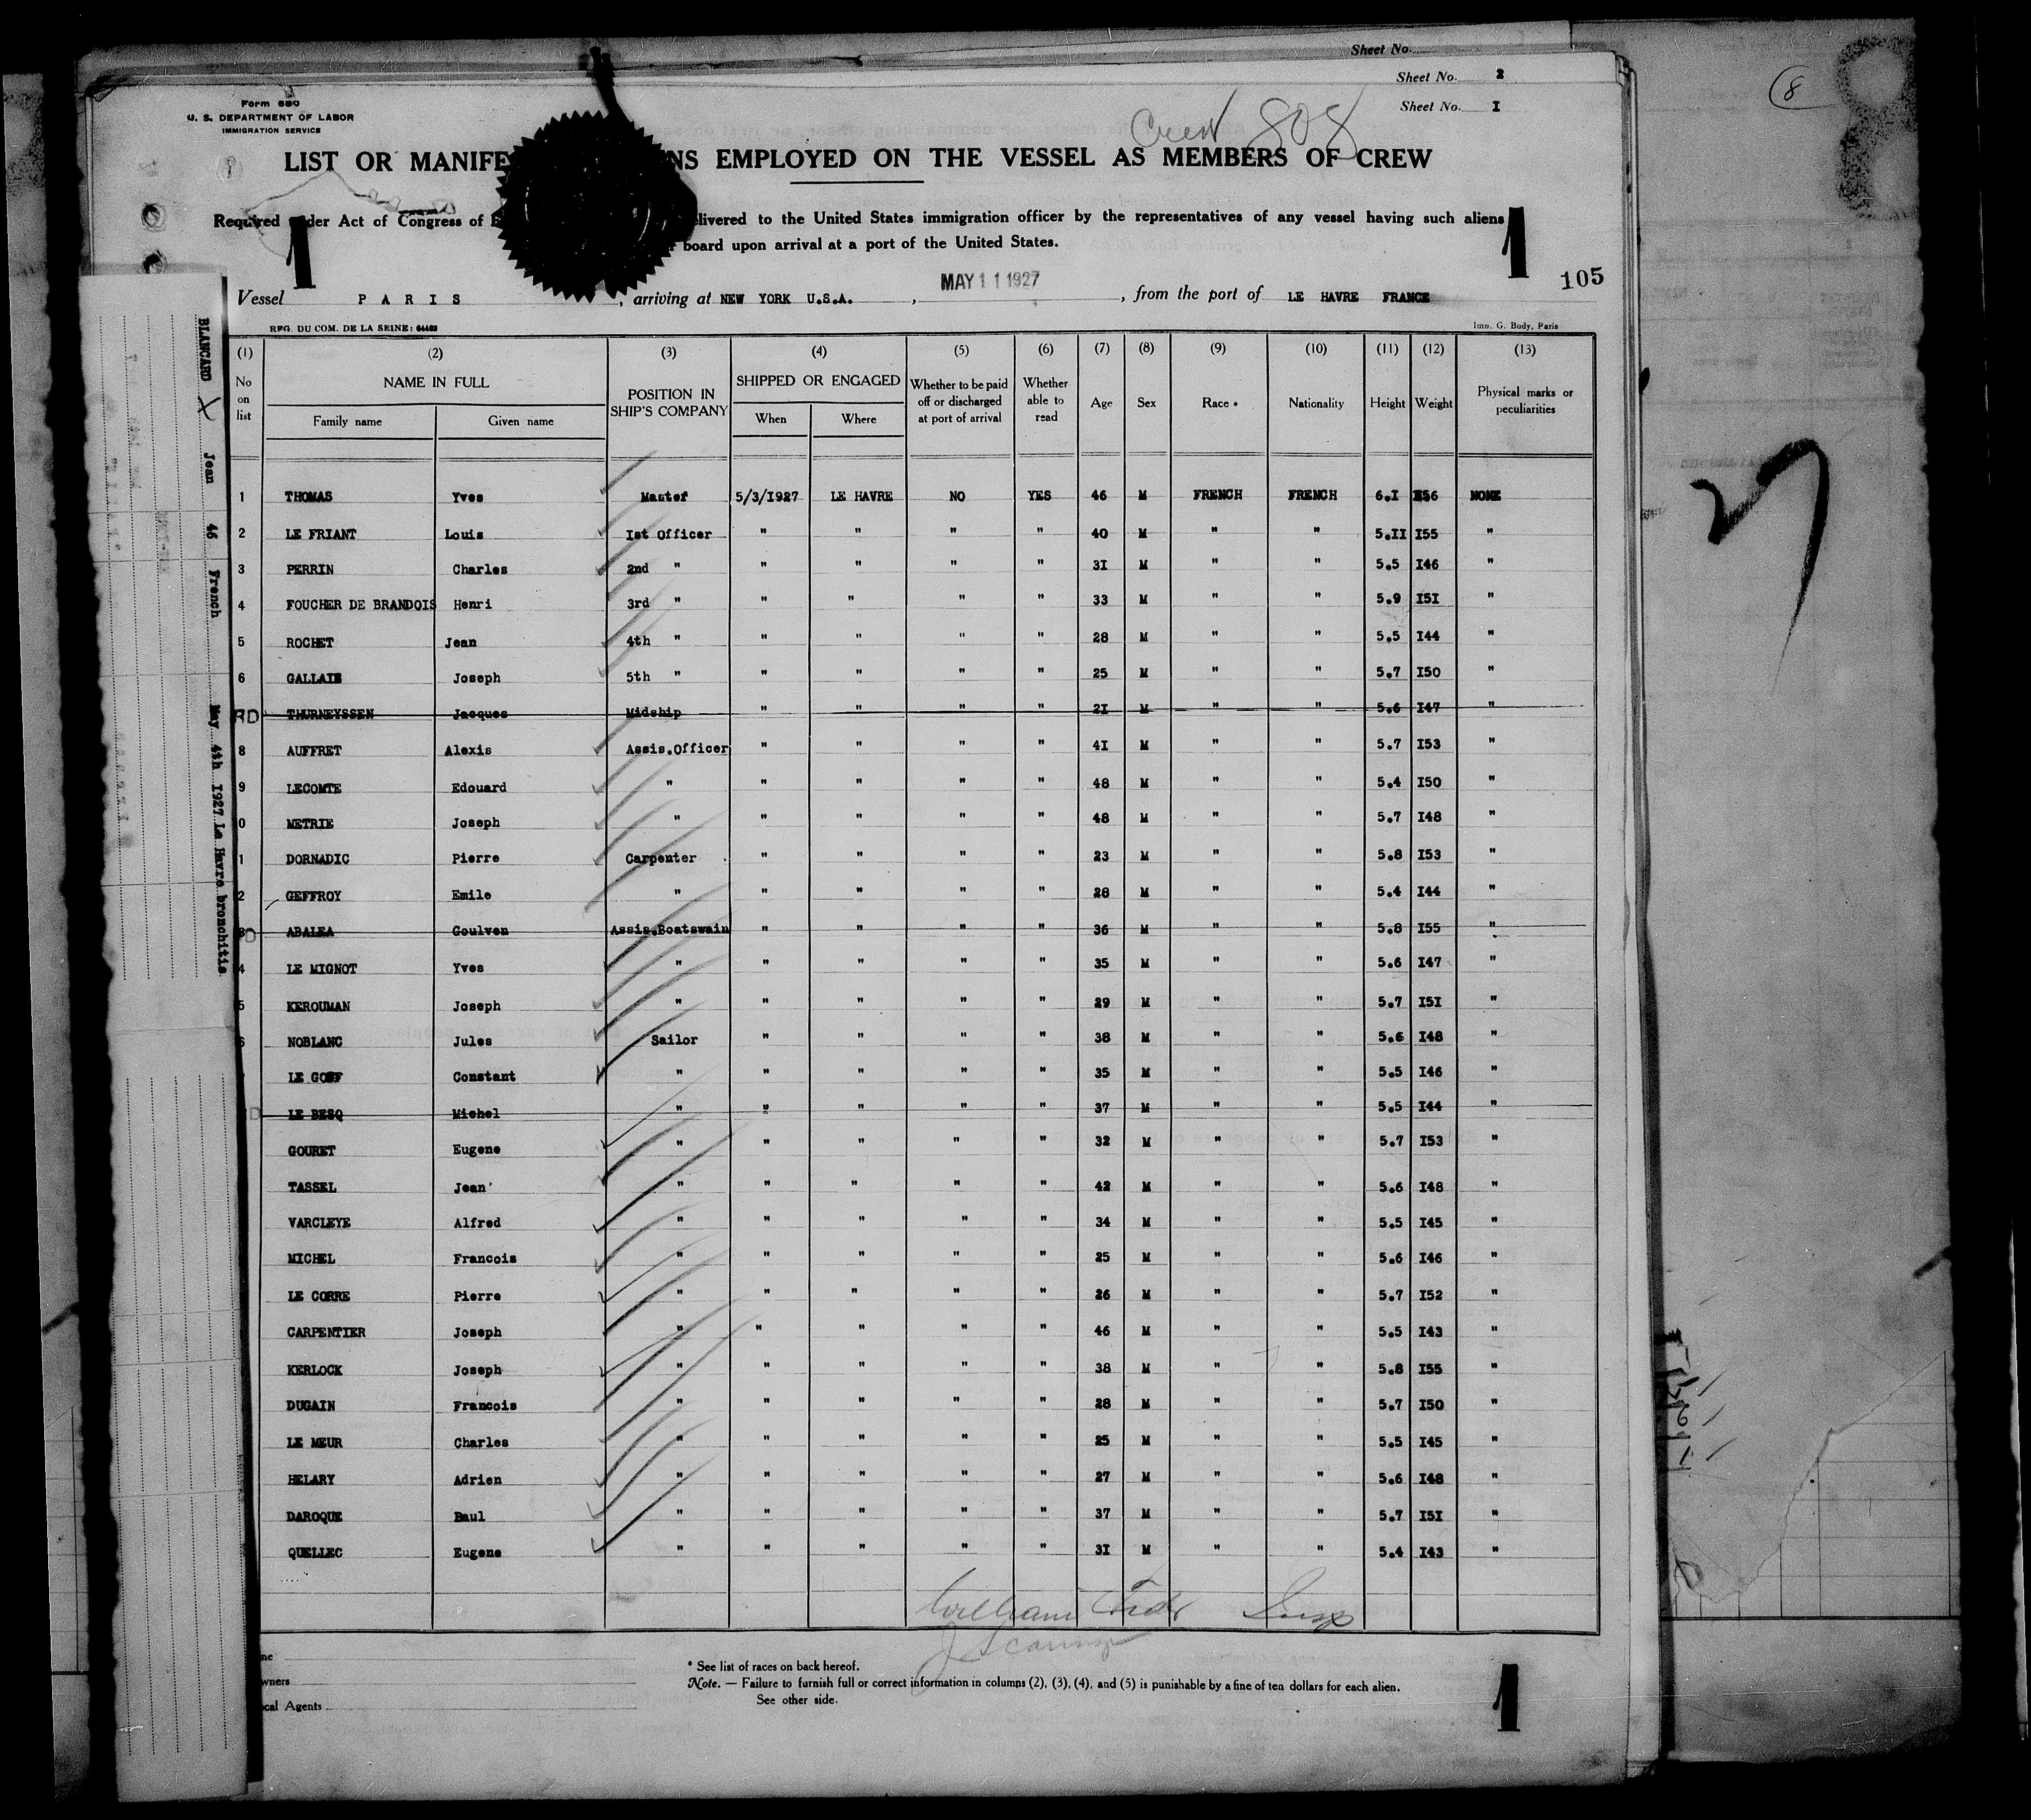 Sheet No.
Sheet No. 2
Sheet No. I
8
Form 680
U. S. DEPARTMENT OF LABOR
IMMIGRATION SERVICE
Crew 808
LIST OR MANIFE NS EMPLOYED ON THE VESSEL AS MEMBERS OF CREW
Required der Act of Congress of elivered to the United States immigration officer by the representatives of any vessel having such aliens
board upon arrival at a port of the United States.
1 1
105
Vessel PARIS, arriving at NEW YORK U.S.A., MAY 11 1927, from the port of LE HAVRE FRANCE
REG. DU COM. DE LA SEINE: 64483 Imp. G. Budy, Paris
(1) (2) (3) (4) (5) (6) (7) (8) (9) (10) (11) (12) (13)
No on list NAME IN FULL POSITION IN SHIP'S COMPANY SHIPPED OR ENGAGED Whether to be paid off or discharged at port of arrival Whether able to read Age Sex Race * Nationality Height Weight Physical marks or peculiarities
Family name Given name When Where
1 THOMAS Yves Master 5/3/I927 LE HAVRE NO YES 46 M FRENCH FRENCH 6.I I56 NONE
2 LE FRIANT Louis Ist Officer " " " " 40 M " " 5.II I55 "
3 PERRIN Charles 2nd " " " " " 3I M " " 5.5 I46 "
4 FOUCHER DE BRANDOIS Henri 3rd " " " " " 33 M " " 5.9 I5I "
5 ROCHET Jean 4th " " " " " 28 M " " 5.5 I44 "
6 GALLAIS Joseph 5th " " " " " 25 M " " 5.7 I50 "
RD THURNEYSSEN Jacques Midship " " " " 2I M " " 5.6 I47 "
8 AUFFRET Alexis Assis.Officer " " " " 4I M " " 5.7 I53 "
9 LECOMTE Edouard " " " " " 48 M " " 5.4 I50 "
0 METRIE Joseph " " " " " 48 M " " 5.7 I48 "
1 DORNADIC Pierre Carpenter " " " " 23 M " " 5.8 I53 "
2 GEFFROY Emile " " " " " 28 M " " 5.4 I44 "
3 D ABALEA Goulven Assis.Boatswain " " " " 36 M " " 5.8 I55 "
4 LE MIGNOT Yves " " " " " 35 M " " 5.6 I47 "
5 KEROUMAN Joseph " " " " " 29 M " " 5.7 I5I "
6 NOBLANC Jules Sailor " " " " 38 M " " 5.6 I48 "
LE GOFF Constant " " " " " 35 M " " 5.5 I46 "
D LE BESQ Michel " " " " " 37 M " " 5.5 I44 "
GOURET Eugene " " " " " 32 M " " 5.7 I53 "
TASSEL Jean " " " " " 42 M " " 5.6 I48 "
VARCLEYE Alfred " " " " " 34 M " " 5.5 I45 "
MICHEL Francois " " " " " 25 M " " 5.6 I46 "
LE CORRE Pierre " " " " " 26 M " " 5.7 I52 "
CARPENTIER Joseph " " " " " 46 M " " 5.5 I43 "
KERLOCK Joseph " " " " " 38 M " " 5.8 I55 "
DUGAIN Francois " " " " " 28 M " " 5.7 I50 "
LE MEUR Charles " " " " " 25 M " " 5.5 I45 "
HELARY Adrien " " " " " 27 M " " 5.6 I48 "
DAROQUE Baul " " " " " 37 M " " 5.7 I5I "
QUELLEC Eugene " " " " " 3I M " " 5.4 I43 "
William
ne
wners
cal Agents
* See list of races on back hereof.
Note. — Failure to furnish full or correct information in columns (2), (3), (4), and (5) is punishable by a fine of ten dollars for each alien.
See other side.
1
BLANCARD X Jean 46 French May 4th I927 Le Havre bronchitis